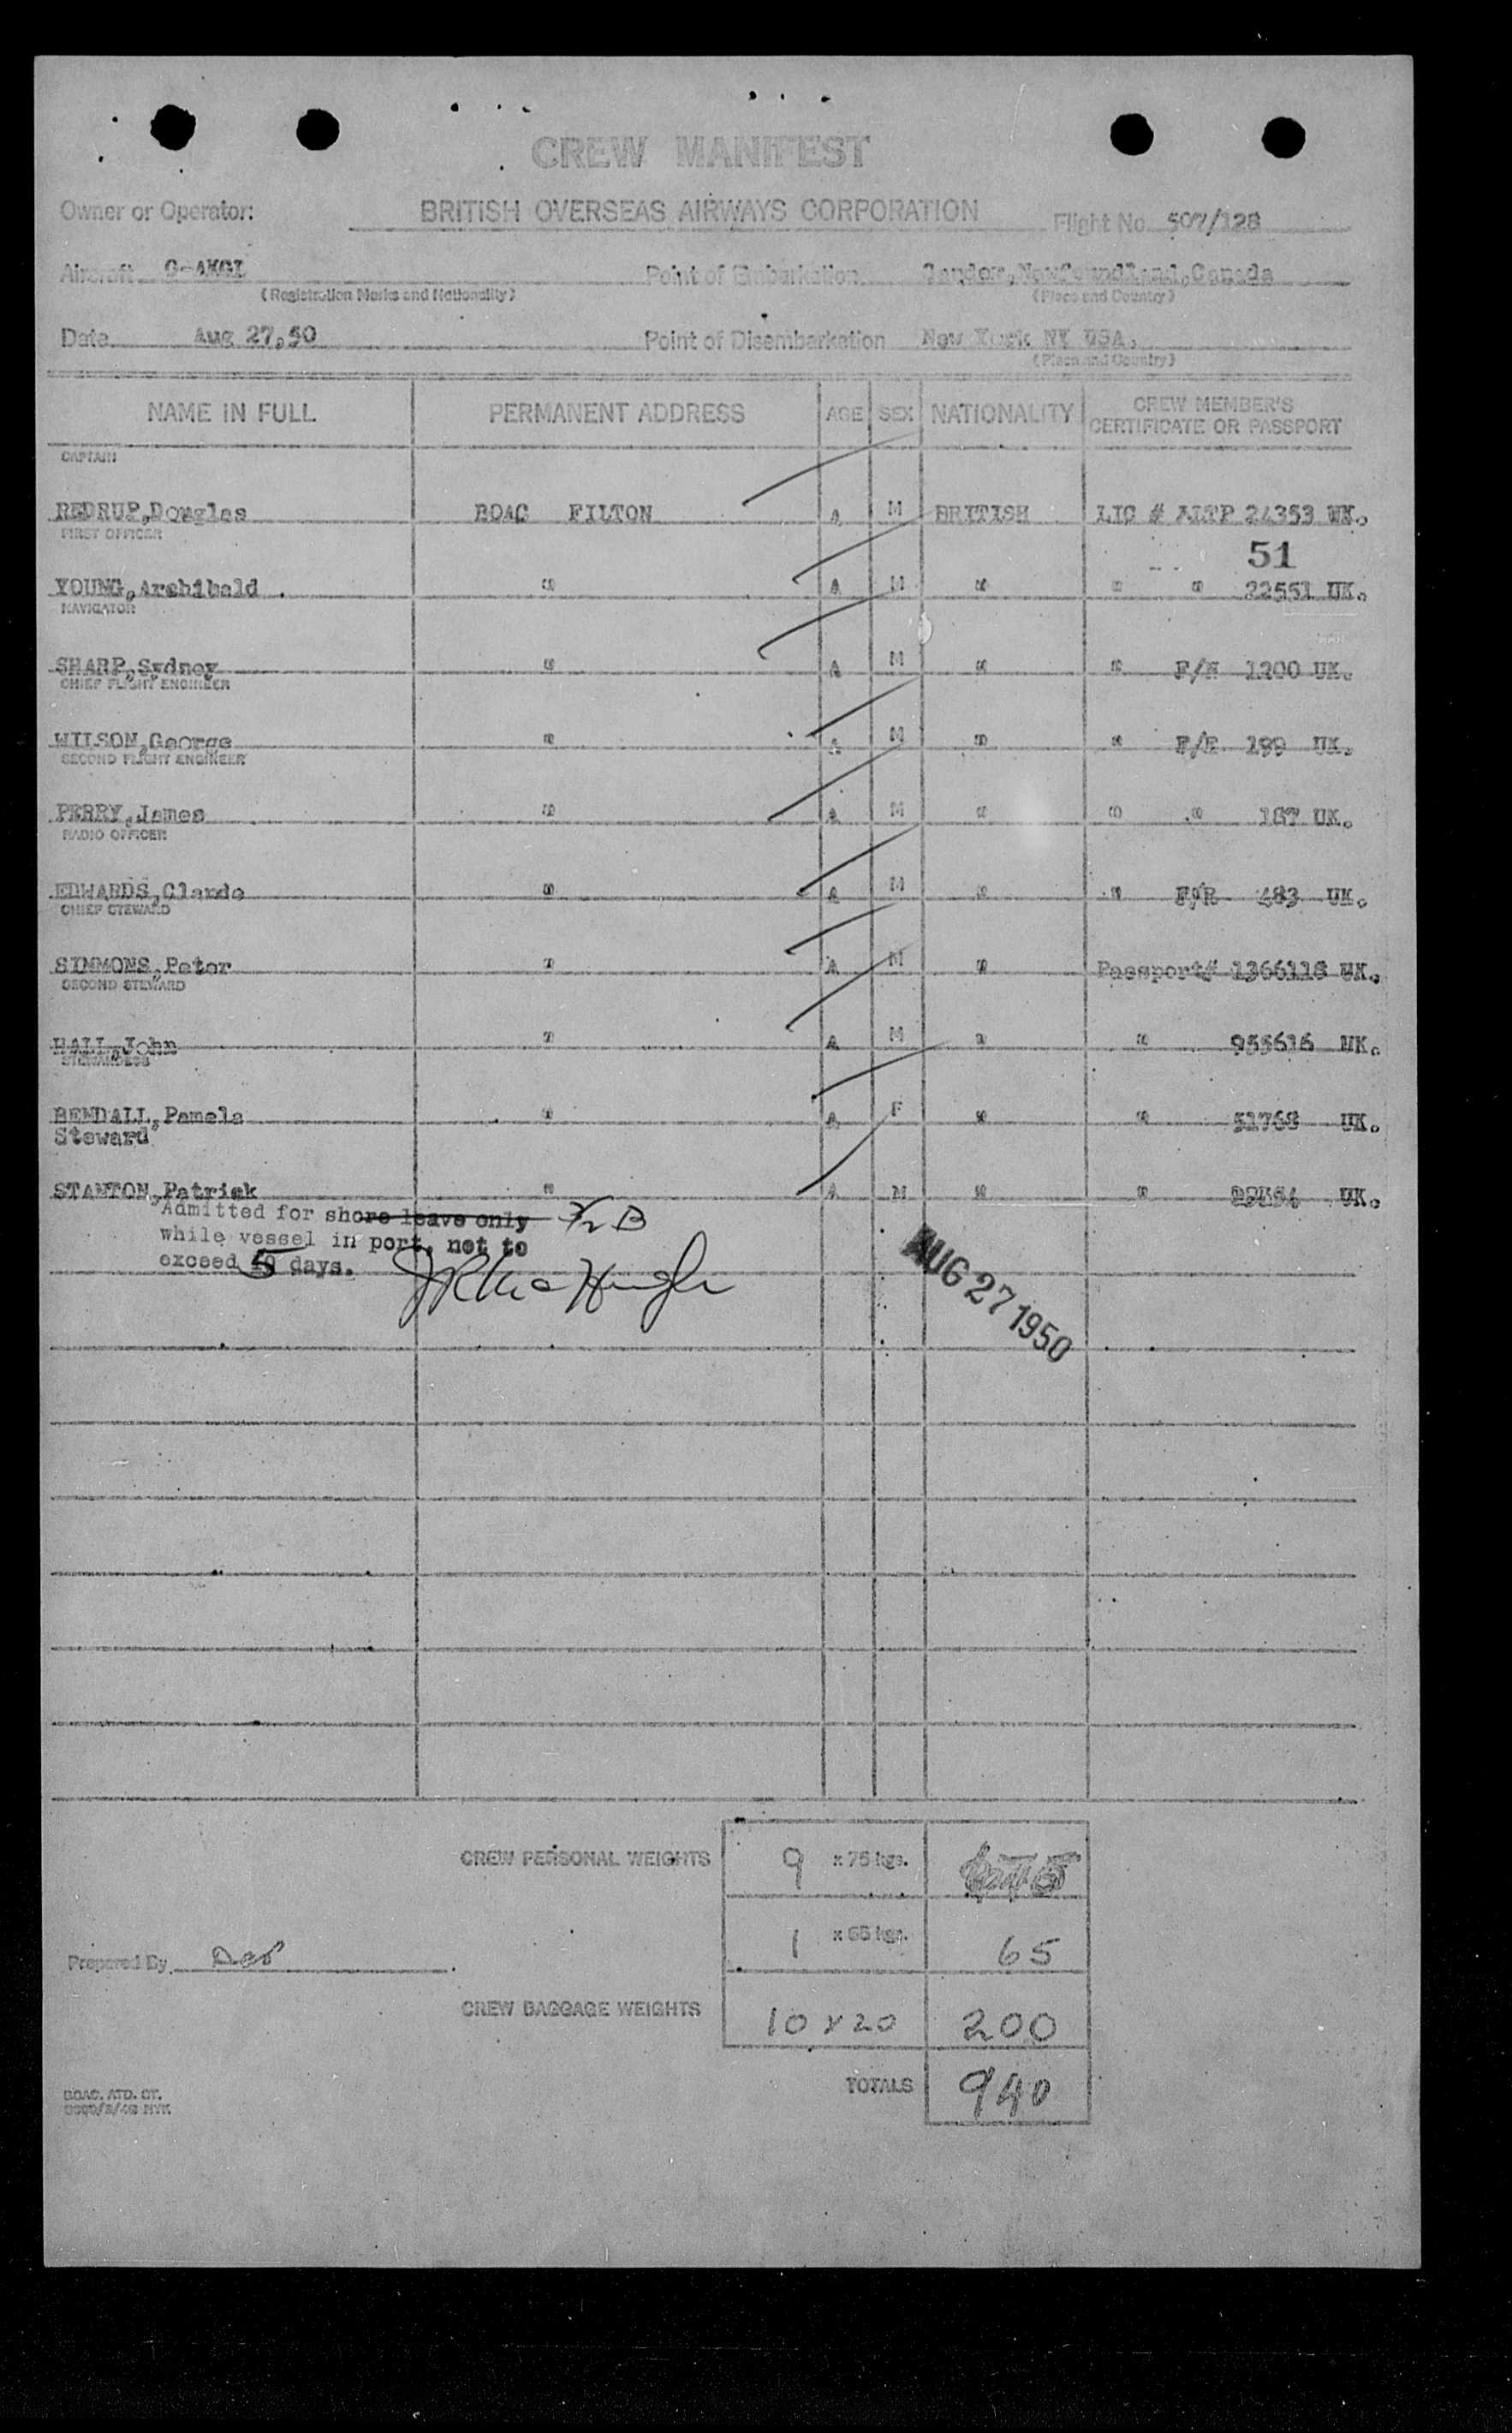 CREW MANIFEST
Owner or Operator: BRITISH OVERSEAS AIRWAYS CORPORATION Flight No. 507/128
Aircraft G-AKGI Point of Embarkation Gander, Newfoundland, Canada
(Registration Marks and Nationality) (Place and Country)
Date Aug 27,50 Point of Disembarkation New York NY USA.
(Place and Country)
NAME IN FULL PERMANENT ADDRESS AGE SEX NATIONALITY CREW MEMBER'S CERTIFICATE OR PASSPORT
CAPTAIN
REDRUP,Douglas BOAC FILTON A M BRITISH LIC # ALTP 24353 UK.
FIRST OFFICER
51
YOUNG,Archibald . " A M " " " 22551 UK.
NAVIGATOR
SHARP,Sydney " A M " " F/N 1200 UK.
CHIEF FLIGHT ENGINEER
WILSON,George " A M " " F/E 199 UK.
SECOND FLIGHT ENGINEER
PERRY,James " A M " " " 167 UK.
RADIO OFFICER
EDWARDS,Claude " A M " " F/R 483 UK.
CHIEF STEWARD
SIMMONS,Peter " A M " Passport# 1366118 UK.
SECOND STEWARD
HALL,John " A M " " 955616 UK.
STEWARDESS
BENDALL,Pamela " A F " " 51768 UK.
Steward
STANTON,Patrick " A M " " UK.
Admitted for shore leave only
while vessel in port, not to
exceed 5 days.
AUG 27 1950
CREW PERSONAL WEIGHTS 9 x 75 kgs.
1 x 65 kgs. 65
Prepared By
CREW BAGGAGE WEIGHTS 10 x 20 200
TOTALS 940
BOAC. ATD. CT.